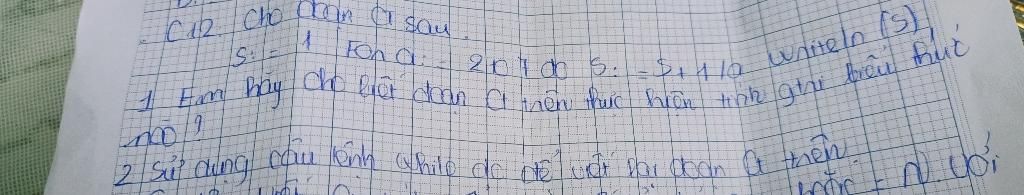 C12 cho đoạn CT sau.
S:=1 For a:=2 to 7 do S:=S+1/a writeln(S)
1 Em hãy cho biết đoạn CT trên thực hiện tính giá trị biểu thức
nào?
2 Sử dụng câu lệnh While do để viết lại đoạn CT trên.